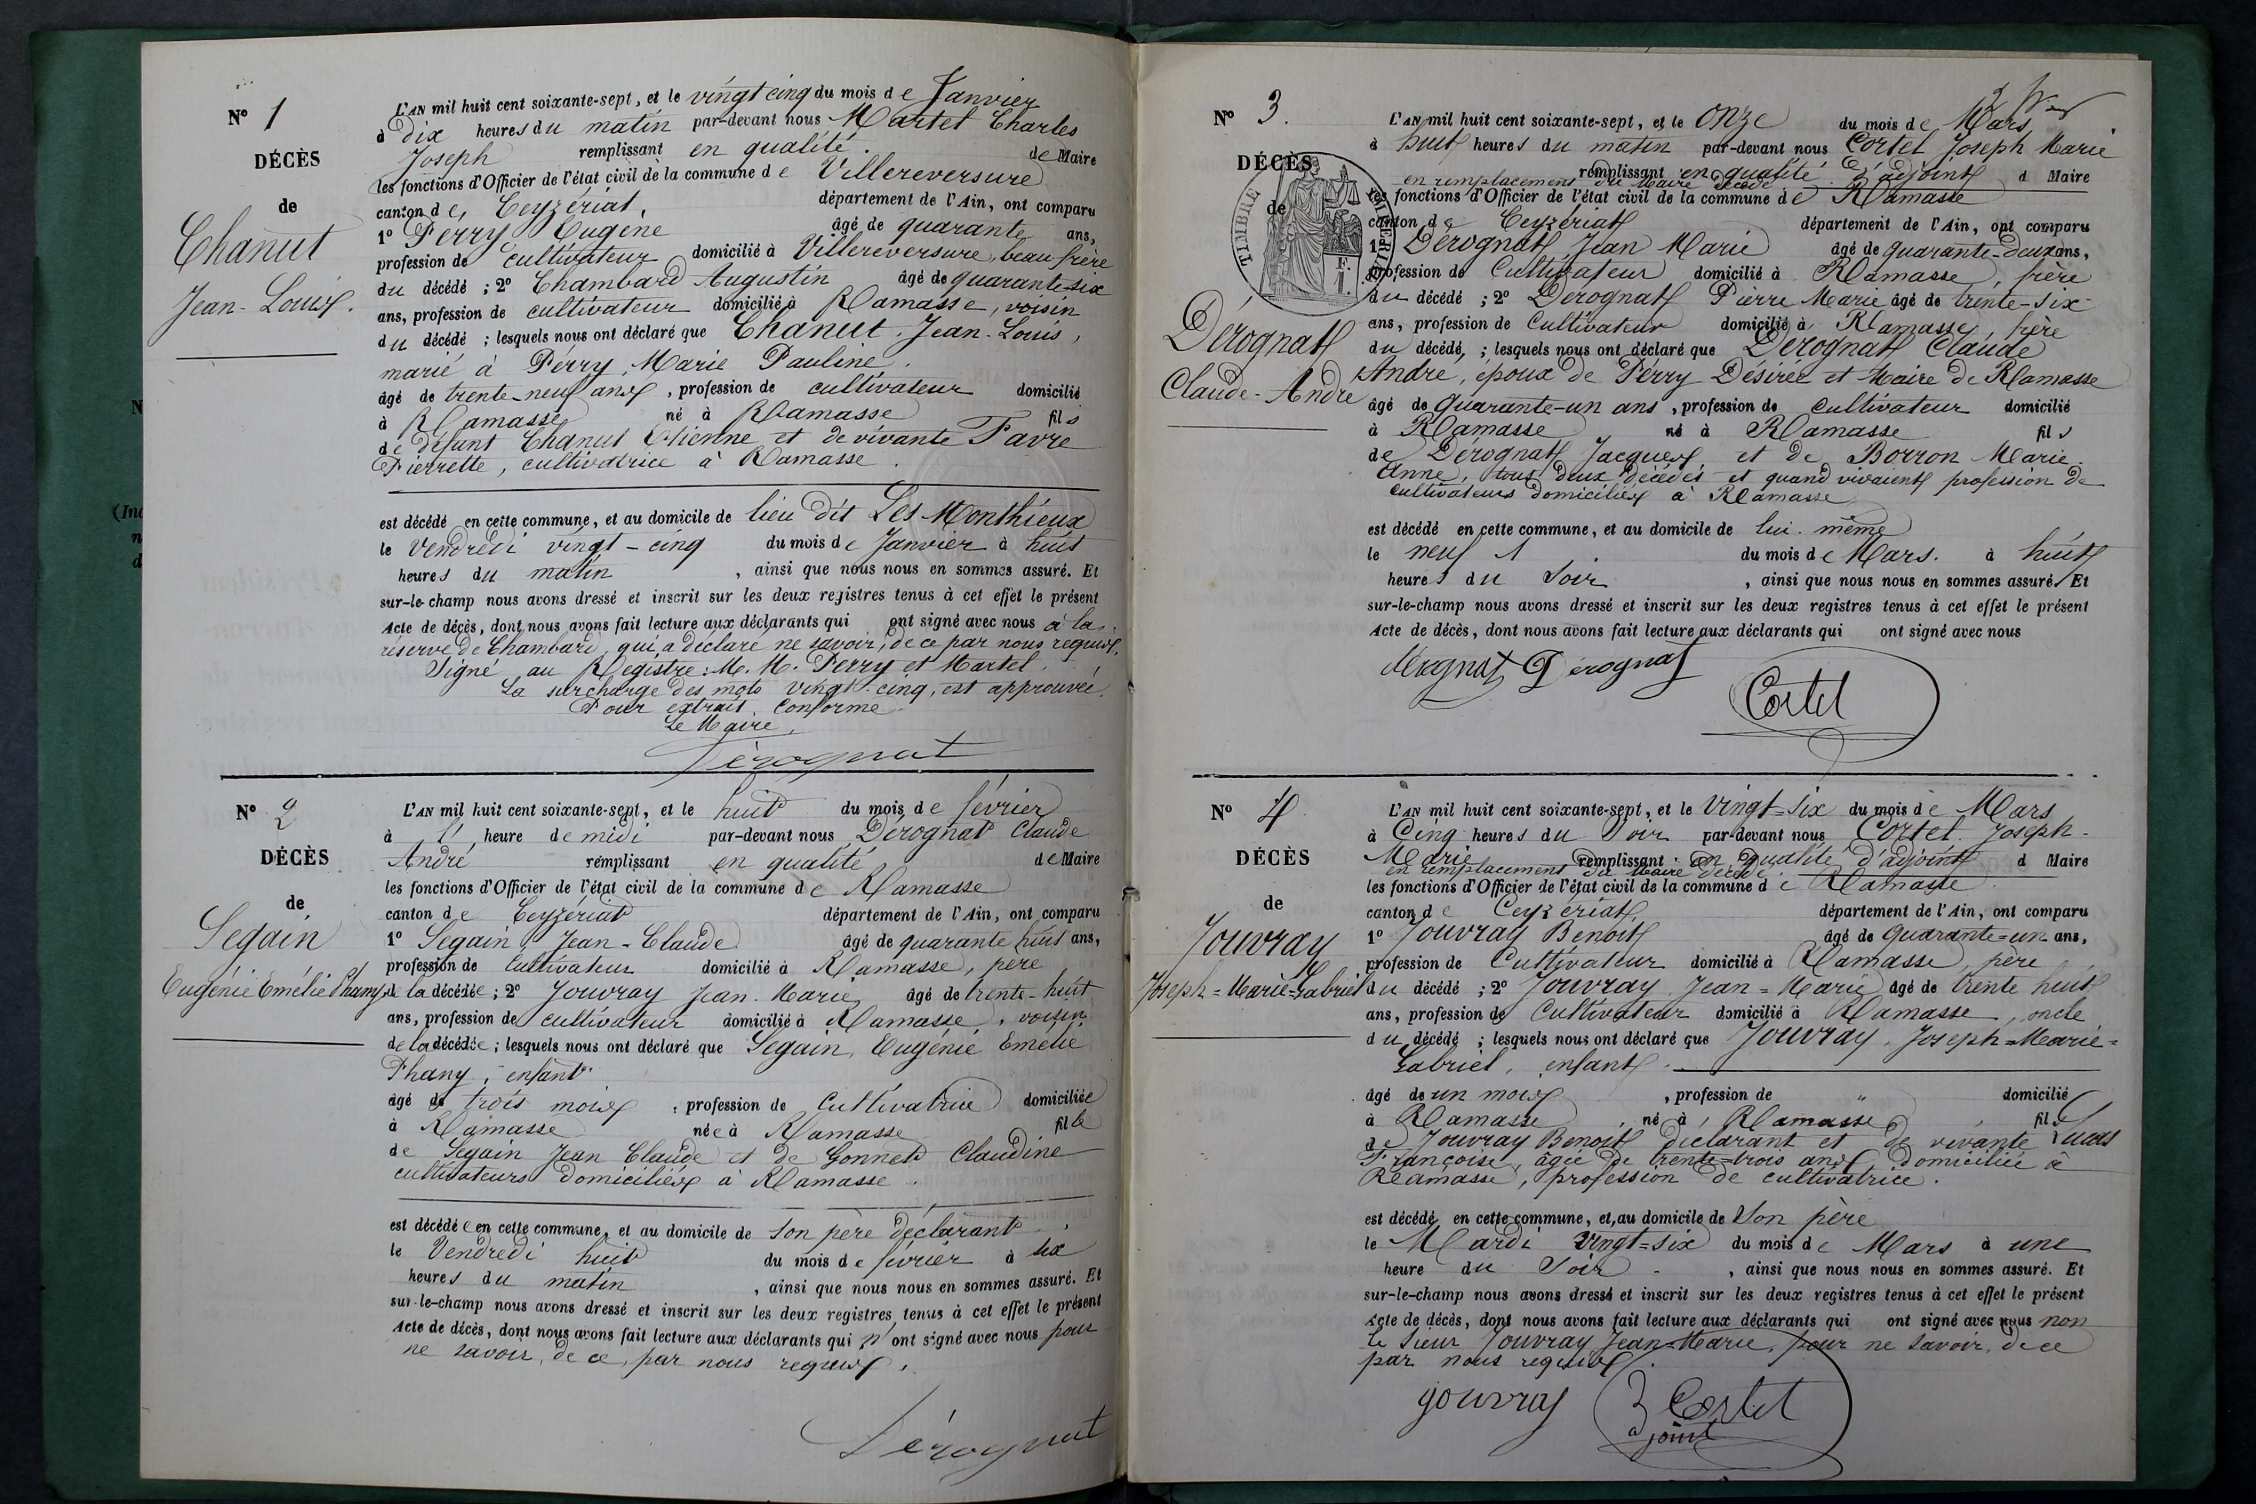 Nº 1
DÉCÈS
de
Chanut
Jean-Louis.
L'AN mil huit cent soixante-sept, et le vingt cinq du mois de Janvier
à dix heures du matin par-devant nous Martel Charles
Joseph remplissant en qualité de Maire
les fonctions d'Officier de l'état civil de la commune de Villereversure
canton de Ceyzériat, département de l'Ain, ont comparu
1º Perry Eugène âgé de quarante ans,
profession de cultivateur domicilié à Villereversure, beau frère
du décédé ; 2º Chambard Augustin âgé de quarante-six
ans, profession de cultivateur domicilié à Ramasse, voisin
du décédé ; lesquels nous ont déclaré que Chanut Jean-Louis,
marié à Perry, Marie Pauline.
âgé de trente-neuf ans, profession de cultivateur domicilié
à Ramasse né à Ramasse fils
de défunt Chanut Etienne et de vivante Favre
Pierrette, cultivatrice à Ramasse.
est décédé en cette commune, et au domicile de lieu dit Les Monthieux
le Vendredi vingt-cinq du mois de Janvier à huit
heures du matin, ainsi que nous nous en sommes assuré. Et
sur-le-champ nous avons dressé et inscrit sur les deux registres tenus à cet effet le présent
Acte de décès, dont nous avons fait lecture aux déclarants qui ont signé avec nous à la
réserve de Chambard, qui a déclaré ne savoir, de ce par nous requis.
Signé au Registre : M. M. Perry et Martel.
La surcharge des mots vingt-cinq, est approuvée.
Pour extrait conforme
Le Maire,
Dérognat
Nº 2
DÉCÈS
de
Segain
Eugénie Emélie Phany
L'AN mil huit cent soixante-sept, et le huit du mois de février
à l' heure de midi par-devant nous Dérognat Claude
André remplissant en qualité de Maire
les fonctions d'Officier de l'état civil de la commune de Ramasse
canton de Ceyzériat département de l'Ain, ont comparu
1º Segain Jean-Claude âgé de quarante huit ans,
profession de cultivateur domicilié à Ramasse, père
de la décédée ; 2º Jouvray Jean-Marie, âgé de trente-huit
ans, profession de cultivateur domicilié à Ramasse, voisin
de la décédée ; lesquels nous ont déclaré que Segain, Eugénie Emélie
Phany, enfant
âgé de trois mois, profession de Cultivatrice domiciliée
à Ramasse née à Ramasse fille
de Segain Jean Claude et de Gonnet Claudine
cultivateurs domiciliés à Ramasse.
est décédée en cette commune, et au domicile de son père déclarant
le Vendredi huit du mois de février à six
heures du matin, ainsi que nous nous en sommes assuré. Et
sur-le-champ nous avons dressé et inscrit sur les deux registres tenus à cet effet le présent
Acte de décès, dont nous avons fait lecture aux déclarants qui n'ont signé avec nous pour
ne savoir, de ce, par nous requis.
Dérognat
Nº 3.
DÉCÈS
de
TIMBRE IMPÉRIAL
Dérognat
Claude-André
L'AN mil huit cent soixante-sept, et le onze du mois de Mars
à huit heures du matin par-devant nous Cortet Joseph Marie
remplissant en qualité d'adjoint d Maire
en remplacement du Maire décédé
les fonctions d'Officier de l'état civil de la commune de Ramasse
canton de Ceyzériat département de l'Ain, ont comparu
1º Dérognat Jean Marie âgé de quarante-deux ans,
profession de Cultivateur domicilié à Ramasse, frère
du décédé ; 2º Dérognat Pierre Marie âgé de trente-six
ans, profession de Cultivateur domicilié à Ramasse, frère
du décédé ; lesquels nous ont déclaré que Dérognat Claude
André, époux de Perry Désirée et Maire de Ramasse
âgé de quarante-un ans, profession de cultivateur domicilié
à Ramasse né à Ramasse fils
de Dérognat Jacques et de Borron Marie
Anne, tous deux décédés et quand vivaient profession de
cultivateurs domiciliés à Ramasse
est décédé en cette commune, et au domicile de lui-même
le neuf du mois de Mars. à huit
heures du soir, ainsi que nous nous en sommes assuré. Et
sur-le-champ nous avons dressé et inscrit sur les deux registres tenus à cet effet le présent
Acte de décès, dont nous avons fait lecture aux déclarants qui ont signé avec nous
dérognat Dérognat
Cortet
Nº 4.
DÉCÈS
de
Jouvray
Joseph=Marie=Gabriel
L'AN mil huit cent soixante-sept, et le vingt=six du mois de Mars
à Cinq heures du soir par-devant nous Cortet Joseph-
Marie remplissant en qualité d'adjoint d Maire
en remplacement du Maire décédé
les fonctions d'Officier de l'état civil de la commune de Ramasse
canton de Ceyzériat département de l'Ain, ont comparu
1º Jouvray Benoit âgé de quarante=un ans,
profession de Cultivateur domicilié à Ramasse, père
du décédé ; 2º Jouvray Jean=Marie âgé de trente huit
ans, profession de Cultivateur domicilié à Ramasse, oncle
du décédé ; lesquels nous ont déclaré que Jouvray, Joseph=Marie=
Gabriel, enfant.
âgé de un mois, profession de " domicilié
à Ramasse, né à Ramasse fils
de Jouvray Benoit déclarant et de vivante Lucas
Françoise, âgée de trente=trois ans, domiciliée à
Ramasse, profession de cultivatrice.
est décédé en cette commune, et au domicile de Son père
le Mardi vingt=six du mois de Mars à une
heure du soir, ainsi que nous nous en sommes assuré. Et
sur-le-champ nous avons dressé et inscrit sur les deux registres tenus à cet effet le présent
Acte de décès, dont nous avons fait lecture aux déclarants qui ont signé avec nous non
le sieur Jouvray Jean=Marie, pour ne savoir, de ce
par nous requis.
jouvray
Cortet
adjoint